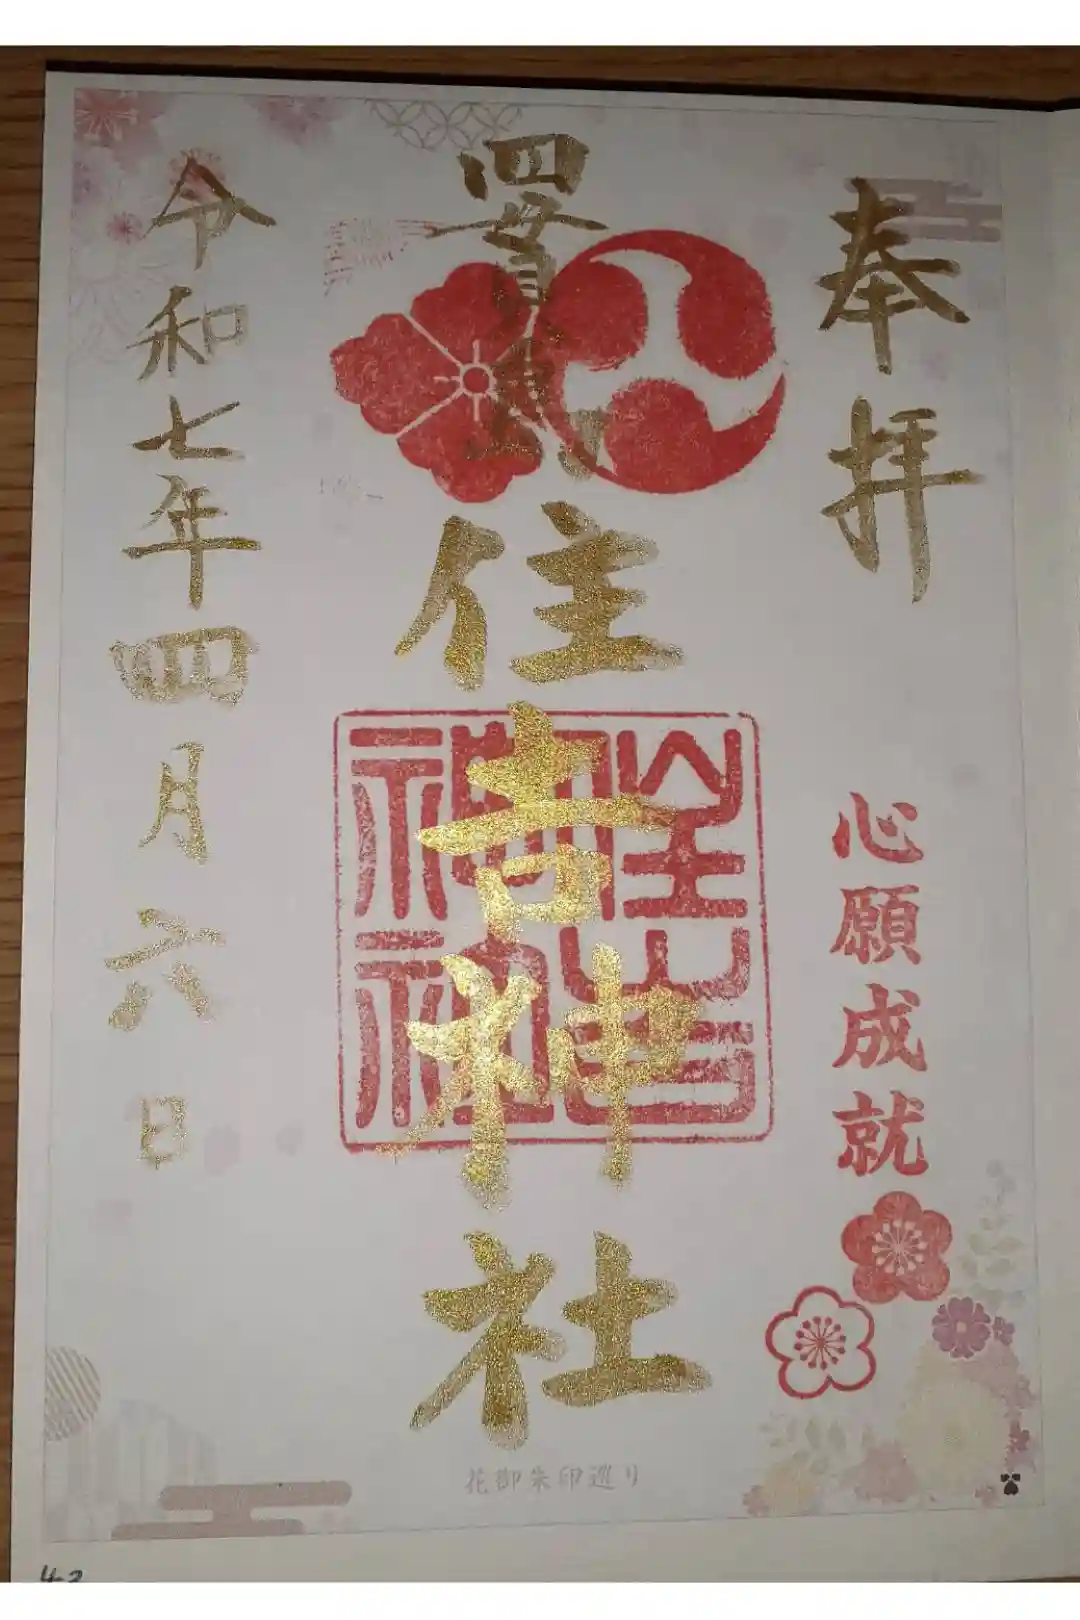 奉拝
心願成就
四貫島
住吉神社
住吉
神社
令和七年四月六日
花御朱印巡り